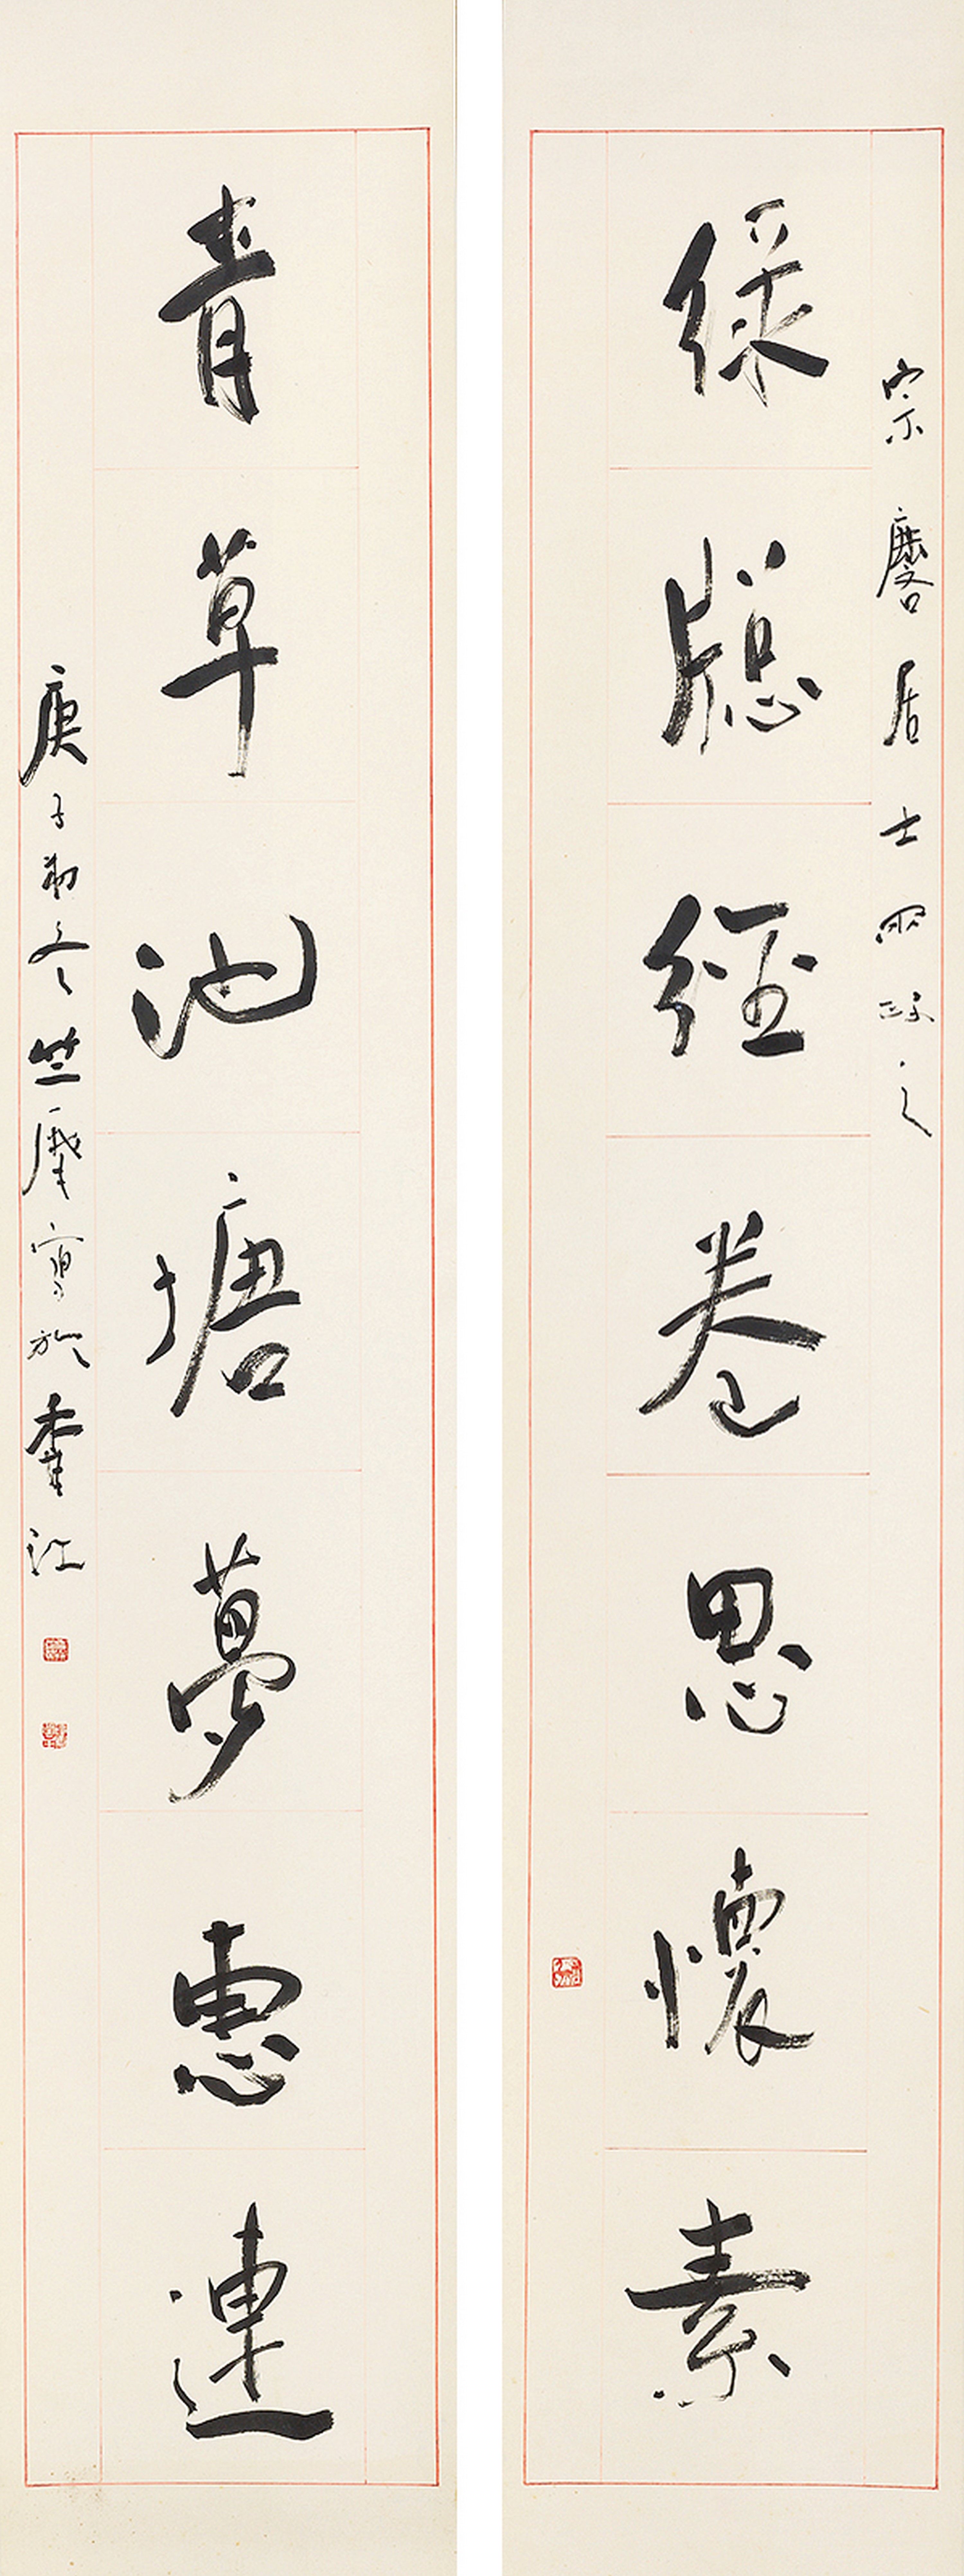 宗麐居士兩政之
綠牕經卷思懷素
青草池塘夢惠連
庚子初冬竺摩寫於香江